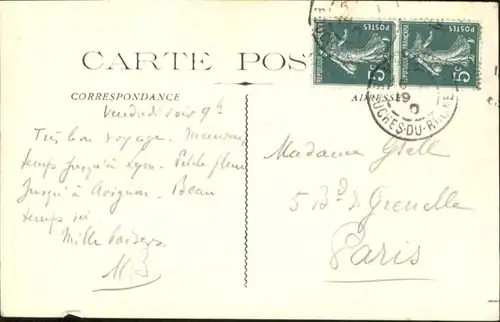 CARTE POST
CORRESPONDANCE
ADRESSE
5c
5c
BOUCHES-DU-RHONE
Vendredi soir 9h
Très bon voyage. Mauvais
temps jusqu'à Lyon. Petite pluie
jusqu'à Avignon. Beau
temps ici
Mille baisers
M B
Madame Gsell
5 Bd de Grenelle
Paris